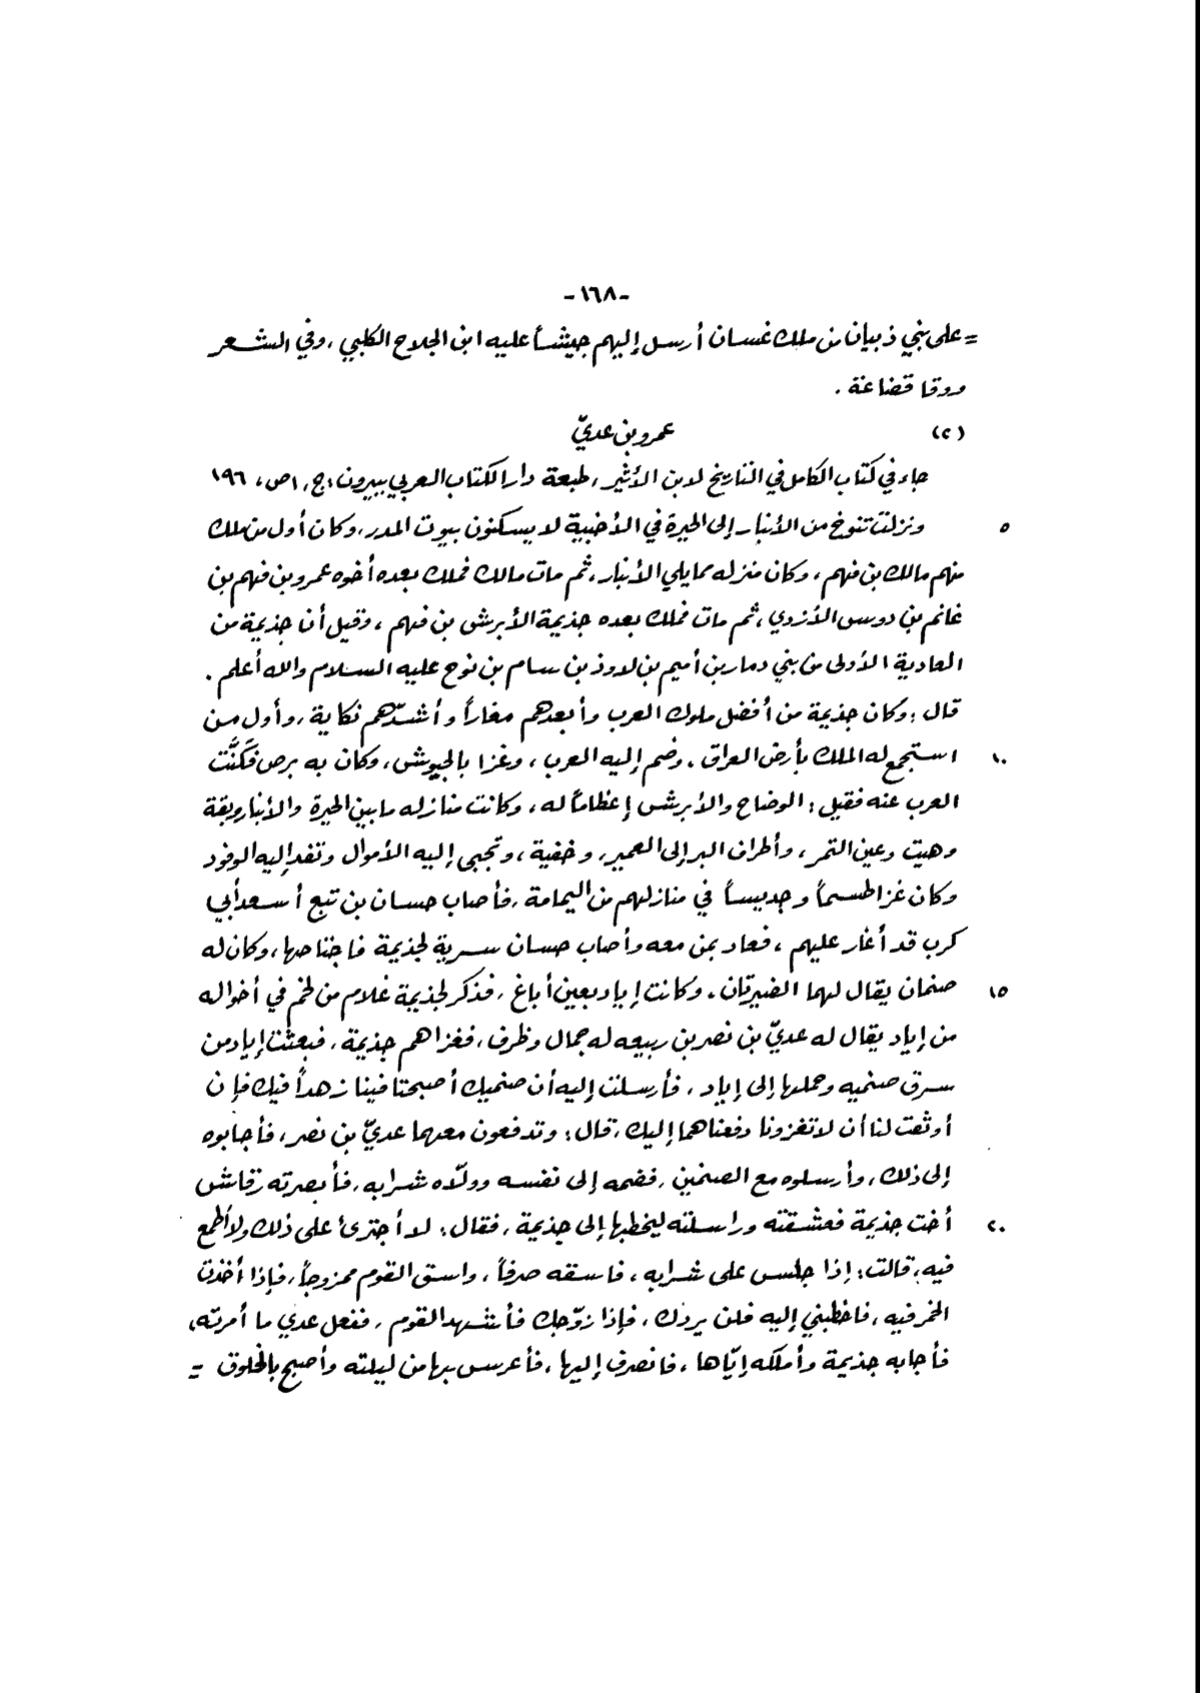 -١٦٨-
= على بني ذبيان من ملك غسان أرسل إليهم جيشاً عليه ابن الجلاح الكلبي ، وفي الشعر
روقا قضاعة .
(٢) عمرو بن عديّ
جاء في كتاب الكامل في التاريخ لابن الأثير ، طبعة دار الكتاب العربي ببيروت : ج ، ١ ص ، ١٩٦
٥ ونزلت تنوخ من الأنبار إلى الحيرة في الأخبية لا يسكنون بيوت المدر ، وكان أول من ملك
منهم مالك بن فهم ، وكان منزله مما يلي الأنبار ، ثم مات مالك فملك بعده أخوه عمرو بن فهم بن
غانم بن دوس الأزدي ، ثم مات فملك بعده جذيمة الأبرش بن فهم ، وقيل أن جذيمة من
العادية الأولى من بني دمار بن أميم بن لاوذ بن سام بن نوح عليه السلام والله أعلم .
قال : وكان جذيمة من أفضل ملوك العرب وأبعدهم مغاراً وأشدّهم نكاية ، وأول من
١٠ استجمع له الملك بأرض العراق . وضم إليه العرب ، وغزا بالجيوش ، وكان به برص فكَنَّت
العرب عنه فقيل : الوضاح والأبرش إعظاماً له ، وكانت منازله ما بين الحيرة والأنبار وبقة
وهيت وعين التمر ، وأطراف البر إلى العمير ، وخفية ، وتجبى إليه الأموال وتفد إليه الوفود
وكان غزا طسماً وجديساً في منازلهم من اليمامة ، فأصاب حسان بن تبع أسعد أبي
كرب قد أغار عليهم ، فعاد بمن معه وأصاب حسان سرية لجذيمة فاجتاحها ، وكان له
١٥ صنمان يقال لهما الضيزنان . وكانت إياد بعين أباغ ، فذكر لجذيمة غلام من لخم في أخواله
من إياد يقال له عديّ بن نصر بن ربيعه له جمال وظرف ، فغزاهم جذيمة ، فبعثت إياد من
سرق صنميه وحملها إلى إياد ، فأرسلت إليه أن صنميك أصبحتا فينا زهداً فيك فإن
أوثقت لنا أن لا تغزونا دفعناهما إليك ، قال : وتدفعون معهما عديّ بن نصر ، فأجابوه
إلى ذلك ، وأرسلوه مع الصنمين ، فضمه إلى نفسه وولّاه شرابه ، فأبصرته رقاش
٢٠ أخت جذيمة فعشقته وراسلته ليخطبها إلى جذيمة ، فقال : لا أجترئ على ذلك ولا أطمع
فيه ، قالت : إذا جلس على شرابه ، فاسقه صرفاً ، واسق القوم ممزوجاً ، فإذا أخذت
الخمر فيه ، فاخطبني إليه فلن يردّك ، فإذا زوّجك فأشهد القوم ، ففعل عدي ما أمرته ،
فأجابه جذيمة وأملكه إيّاها ، فانصرف إليها ، فأعرس بها من ليلته وأصبح بالخلوق =